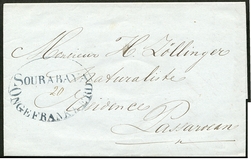 Monsieur H. Zollinger
SOURABAYA
Naturaliste
20
ONGEFRANKEERD
Résidence
Passaroean